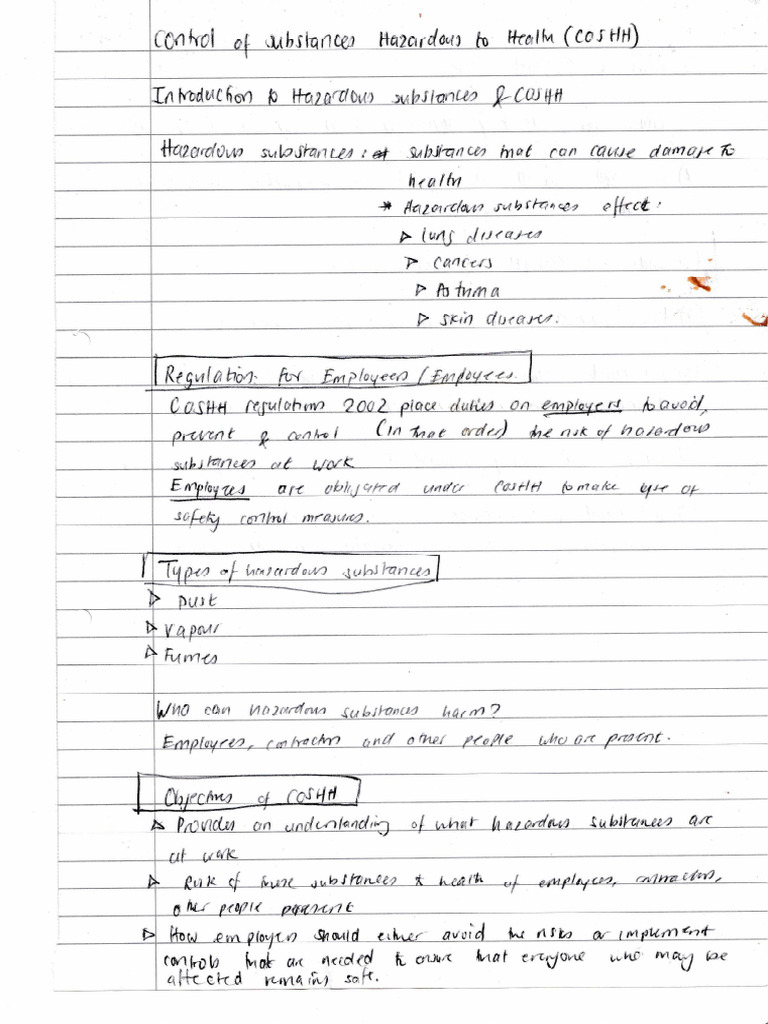 Control of substances Hazardous to Health (COSHH)
Introduction to Hazardous substances & COSHH
Hazardous substances: substances that can cause damage to
health
* Hazardous substances effect:
▷ lung diseases
▷ cancers
▷ Asthma
▷ skin diseases.
Regulation for Employeers / Employees.
COSHH regulations 2002 place duties on employers to avoid,
prevent & control (in that order) the risk of hazardous
substances at work
Employees are obligated under COSHH to make use of
safety control measures.
Types of hazardous substances
▷ Dust
▷ Vapour
▷ Fumes
Who can hazardous substances harm?
Employees, contractors and other people who are present.
Objectives of COSHH
▷ Provides an understanding of what hazardous substances are
at work
▷ Risk of these substances to health of employees, contractors,
other people present
▷ How employers should either avoid the risks or implement
controls that are needed to ensure that everyone who may be
affected remains safe.